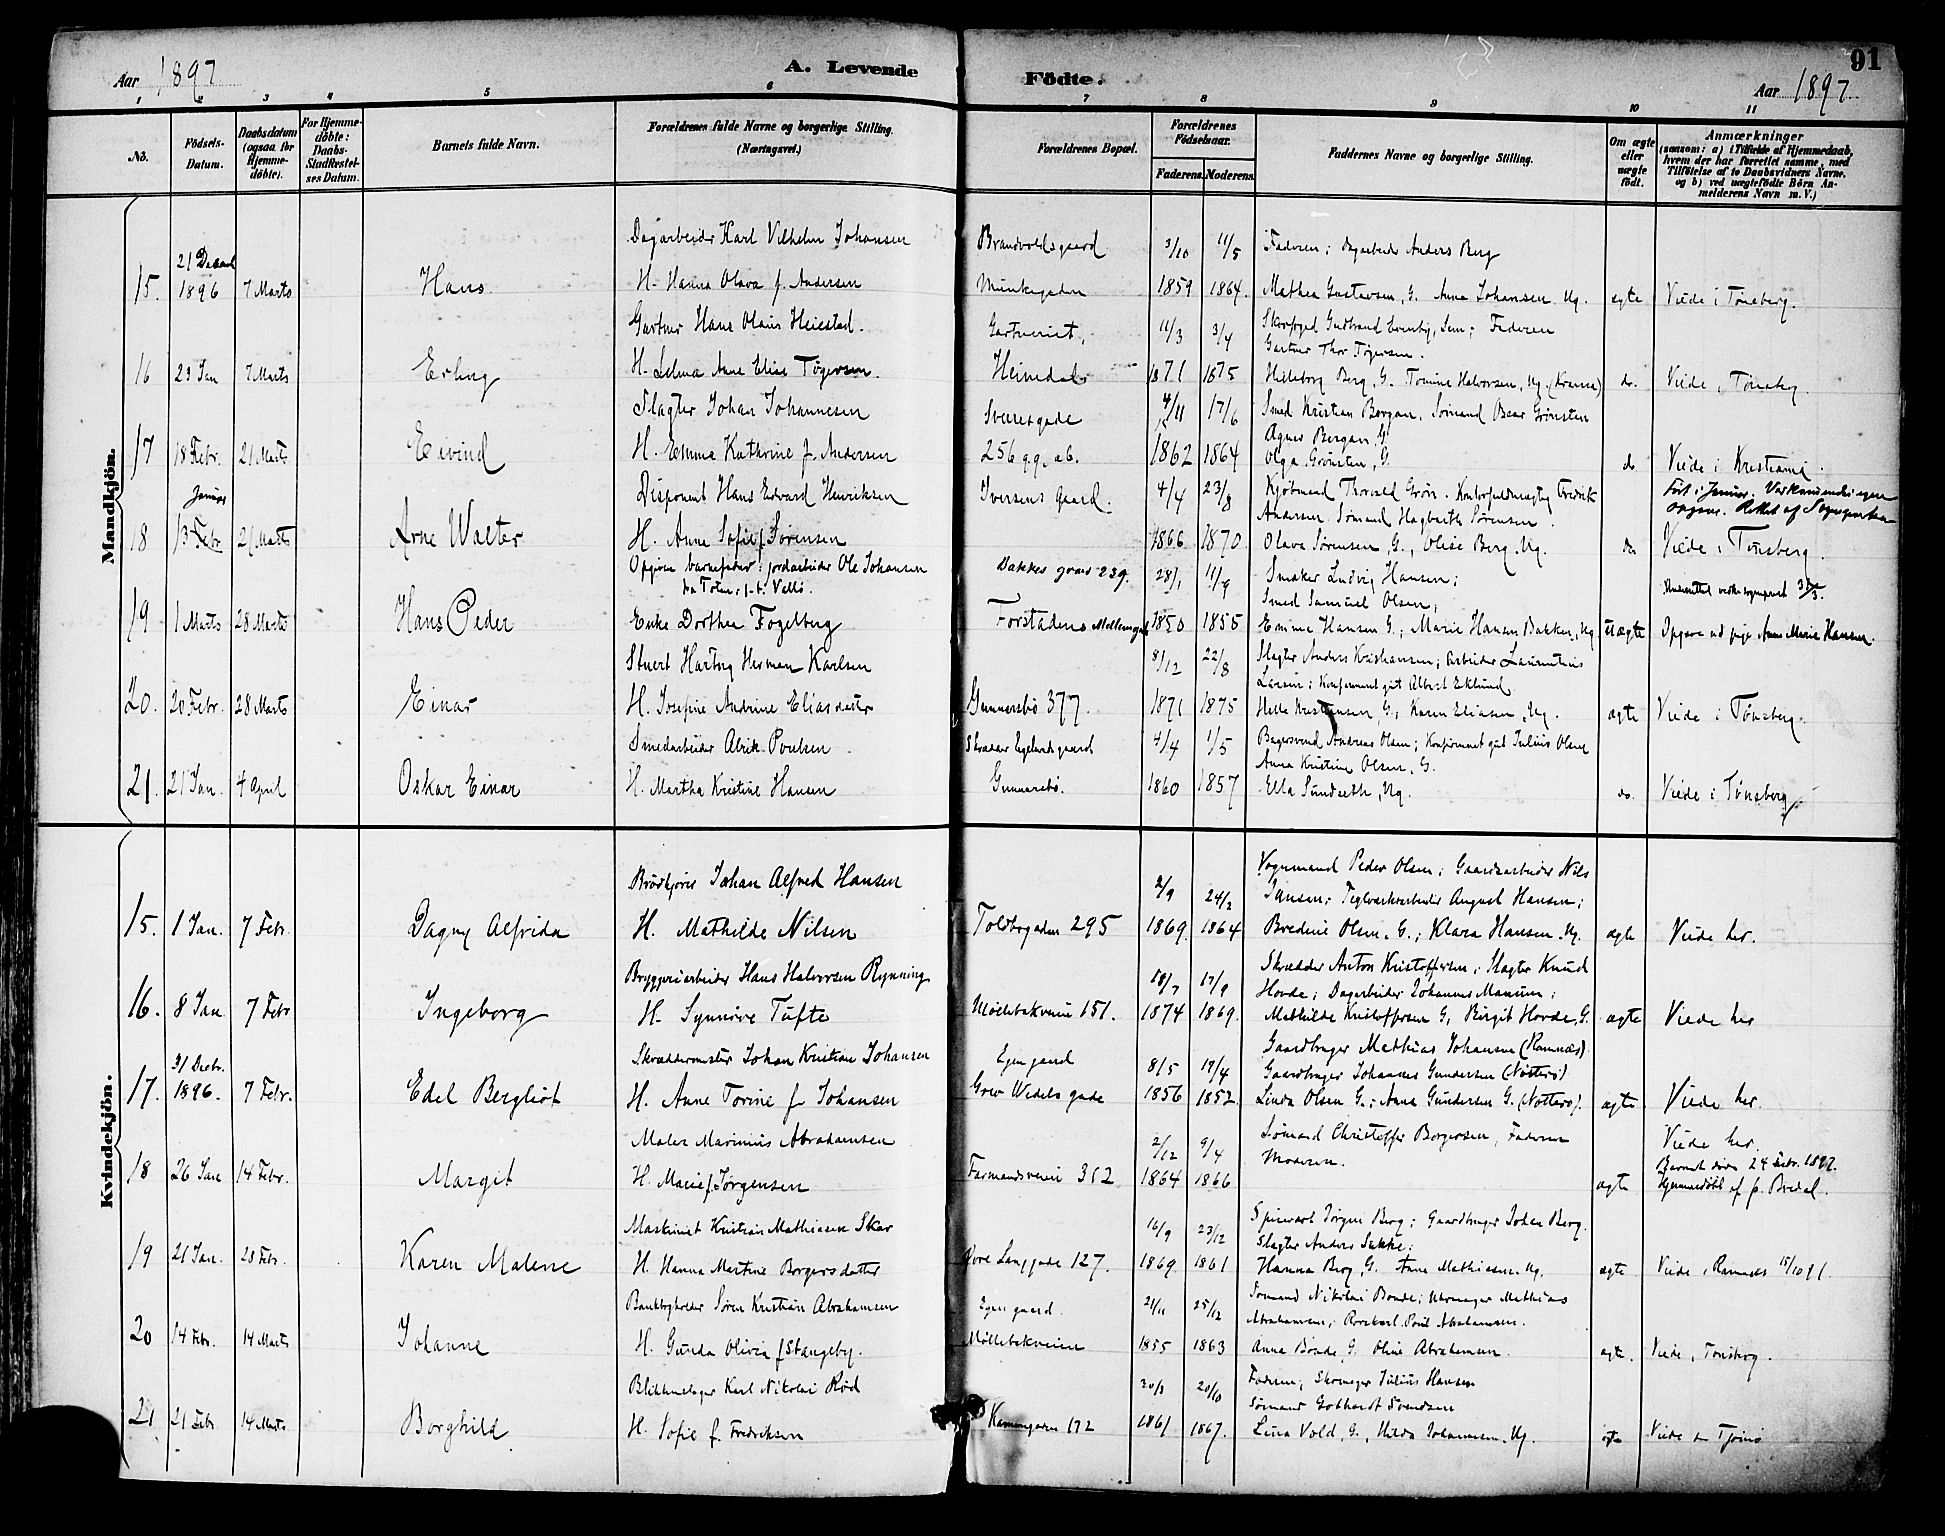 Aar 1897
A. Levende
Födte.
Aar 1897
91
1 2 3 4 5 6 7 8 9 10 11
No.
Födsels-Datum.
Daabsdatum (ogsaa for Hjemme-döbte).
For Hjemme-döbte: Daabs-Stadfæstel-ses Datum.
Barnets fulde Navn.
Forældrenes fulde Navne og borgerlige Stilling. (Næringsvei.)
Forældrenes Bopæl.
Forældrenes Födselsaar.
Faderens. Moderens.
Faddernes Navne og borgerlige Stilling.
Om ægte eller uægte födt.
Anmærkninger
(saasom: a) i Tilfælde af Hjemmedaab, hvem der har forrettet samme, med Tilföielse af to Daabsvidners Navne. og b) ved uægtefödte Börn An-melderens Navn m. V.)
Mandkjön.
Dagarbeider Karl Vilhelm Johansen
Brandvoldsgaard 3/10 11/5 Faderen; dagarbeider Anders Berg
15. 21 Decbr 1896 7 Marts Hans H. Hanna Olava f. Andersen
Munkegaden 1859 1864. Mathea Gustavsen, G. Anna Johansen, Ug. ægte Viede i Tønsberg.
Gartner Hans Olaus Heiestad.
Gartneriet, 11/3 3/4 Gudbrand Sem; Faderen
Gartner Thor Tøgersen.
16 23 Jan 7 Marts Erling H. Selma Anne Elise Tøgersen.
Heimdal 1871 1875 Berg, G. Tomine Halvorsen, Ug. do. Viede i Tønsberg
Slagter Johan Johannesen
Sverresgade 4/11 17/6 Smed Kristian Bergan, Sømand Oscar Grønsten
Agnes Bergan, G.
17 18 Febr. 21 Marts Eivind H. Emma Kathrine f. Andersen
256 1862 1864 Olga Grønsten, G. do Viede i Kristiania.
Disponent Hans Edvard Henriksen
Iversens Gaard. 4/4 23/8 Kjøbmand Thorvald Grøn. Fredrik
Andersen. Sømand Hagbarth Sørensen.
18 Januar 13 Febr 21 Marts Arne Walter H. Anne Sofie f. Sørensen
1866 1870. Olava Sørensen, G., Olise Berg, Ug. do Viede i Tønsberg.
Opgiven barnefader: jordarbeider Ole Johansen
fra Toten, p.t. Vallø.
Bakkes grav 239. 28/1 11/9 Snekker Ludvig Hansen;
Smed Samuel Olsen;
19 1 Marts 28 Marts Hans Peder Enke Dorthea Fogelberg
Forstadens Møllegade 1850 1855 Emma Hansen G.; Marie Hansen Bakken, Ug. Uægte Opgave ved pige Anne Marie Hansen.
Stuert Hartvig Herman Karlsen
8/12 22/8 Slagter Anders Kristiansen; arbeider Laurentius
Larsen; Konfirmeret gut Albert Eklund.
20. 20 Febr. 28 Marts Einar H. Josefine Andrine Eliasdatter
Gunnersbø 377. 1871 1875 Helle Kristiansen, G.; Karen Eliasen, Ug. ægte Viede i Tønsberg.
Smedarbeider Alrik Poulsen
4/4 1/5 Bagersvend Andreas Olsen; Konfirmeret gut Julius Olsen
Anna Kristine Olsen, G.
21. 21 Jan. 4 April Oskar Einar H. Martha Kristine Hansen
Gunnarsbø. 1860 1857 Ella Sundseth, Ug. do. Viede i Tønsberg
Kvindekjön.
Brødkjører Johan Alfred Hansen
2/9 24/2 Vognmand Peder Olsen; Gaardsarbeider Nils
Jansen; Teglverksarbeider August Hansen;
15. 1 Jan. 7 Febr. Dagny Alfrida H. Mathilde Nilsen
Toldbogaden 295 1869. 1864 Bredine Olsen, G.; Klara Hansen, Ug. ægte Viede her.
Bryggeriarbeider Hans Halvorsen Rynning
10/7 17/9 Skrædder Anton Kristoffersen; Slagter Knud
Hovde; Dagarbeider Johannes
16. 8 Jan. 7 Febr Ingeborg H. Synnøve Tufte
Møllebakveien 151. 1874 1869. Mathilde Kristoffersen G, Birgit Hovde, G. ægte Viede her
Skræddermester Johan Kristian Johansen
Egen gaard 8/5 19/4 Gaardbruger Mathias Johansen (Ramnæs)
Gaardbruger Johannes Gundersen (Nøtterø)
17. 31 Decbr. 1896. 7 Febr. Edel Bergliot H. Anne Torine f Johansen
Grev Wedels gade 1856 1852. Linda Olsen G.; Anna Gundersen G. (Nøtterø). ægte Viede her.
Maler Marinius Abrahamsen
2/12 9/4 Sømand Christoffer Borgersen, Faderen
Moderen.
18 26 Jan 14 Febr. Margit H. Marie f. Jørgensen
Farmandsveien 312 1864 1866 ægte Viede her.
Barnet døde 24 Febr. 1897.
Hjemmedøbt af p. Bredal.
Maskinist Kristian Mathiasen Skar
16/9 23/12 Jørgen Berg; Gaardbruger Johan Berg.
Slagter Anders
19 21 Jan. 28 Febr. Karen Malene H. Hanna Martine Borgersdatter
Øvre Langgade 127. 1869 1861 Hanna Berg, G. Anne Mathiasen, Ug. ægte Viede i Ramnæs 15/10 91.
Bankbogholder Søren Kristian Abrahamsen
Egen gaard. 21/11 25/12 Sømand Nikolai Bonde; Mathias
Abrahamsen; Poul Abrahamsen.
20 14 Febr. 14 Marts Johanne H. Gunda Olivia f Stangeby.
Møllebakveien 1855 1863 Anna Bonde, G. Oline Abrahamsen. ægte. Viede i Tønsberg.
Blikkenslager Karl Nikolai Rød
20/3 20/10 Faderen; Skomager Julius Hansen
Sømand Gotthardt Svendsen
21 21 Febr. 14 Marts Borghild H. Sofie f. Fredriksen
172 1861 1867. Lina Vold, G., Hilda Johannesen, Ug. ægte Viede Tjømø